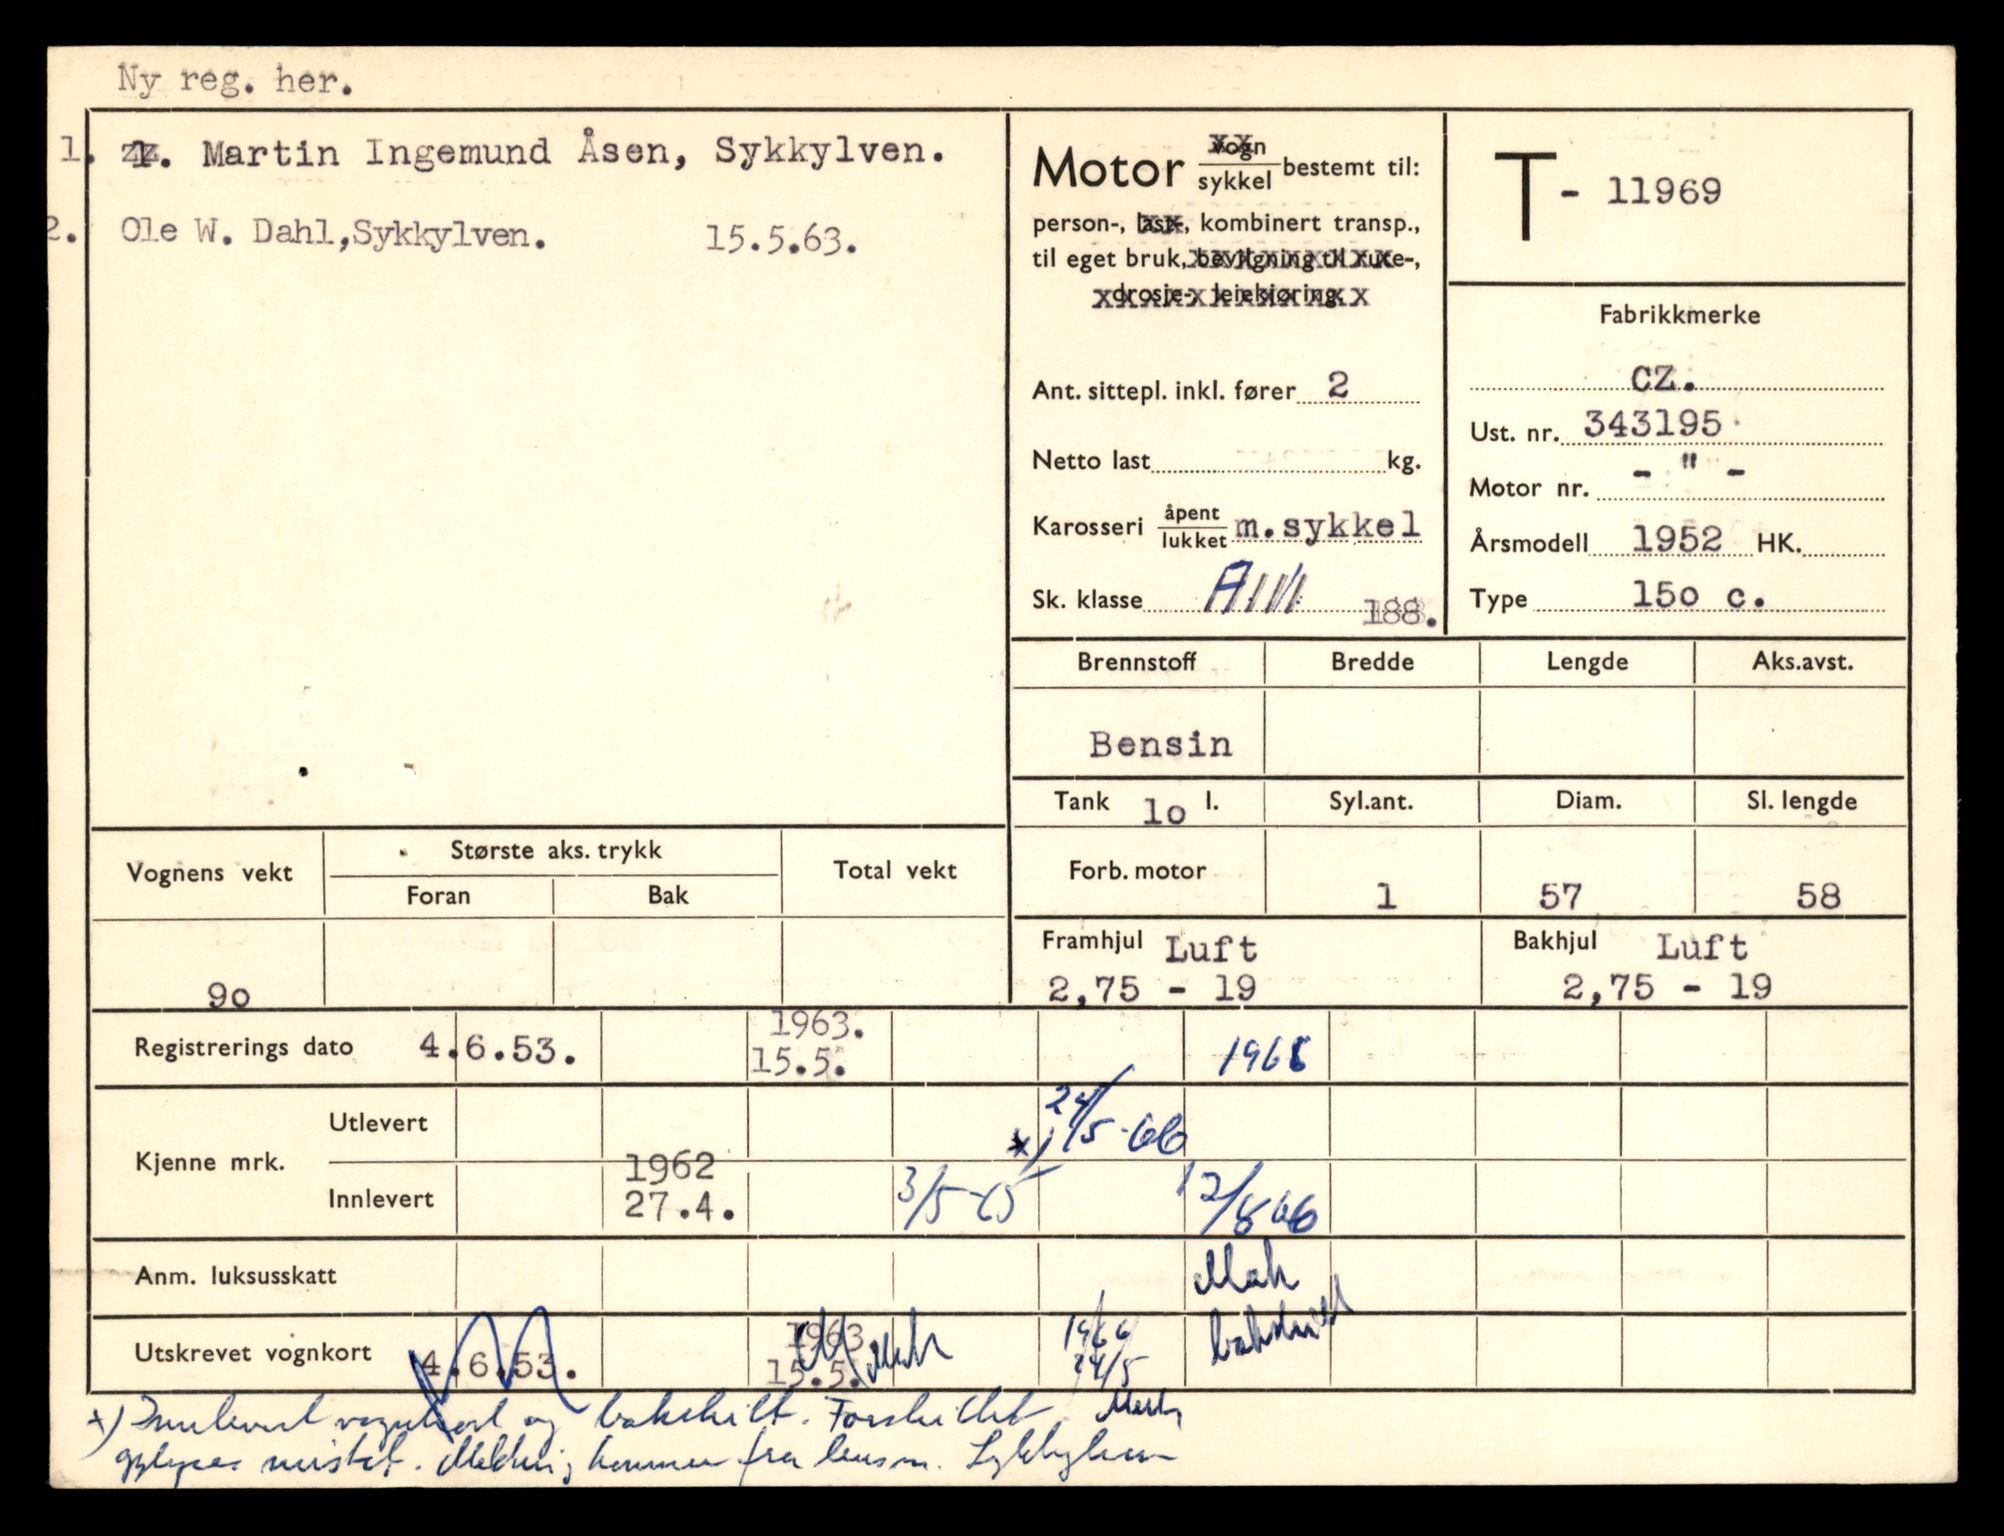 Ny reg. her.
1. Martin Ingemund Åsen, Sykkylven.
2. Ole W. Dahl, Sykkylven. 15.5.63.
Motor vogn/sykkel bestemt til:
person-, last-, kombinert transp.,
til eget bruk, bevilgning til rute-,
drosje-, leiekjøring.
Ant. sittepl. inkl. fører 2
Netto last kg.
Karosseri åpent/lukket m.sykkel
Sk. klasse 188.
T - 11969
Fabrikkmerke
CZ.
Ust. nr. 343195
Motor nr. - " -
Årsmodell 1952 HK.
Type 15o c.
Brennstoff Bredde Lengde Aks.avst.
Bensin
Tank 1o l. Syl.ant. Diam. Sl. lengde
Forb. motor 1 57 58
Framhjul Luft Bakhjul Luft
2,75 - 19 2,75 - 19
Vognens vekt Største aks. trykk Total vekt
Foran Bak
9o
Registrerings dato 4.6.53. 1963. 15.5. 1966
Kjenne mrk. Utlevert x) 24/5-66
Innlevert 1962 27.4. 3/5-65 12/8 66
Anm. luksusskatt
Utskrevet vognkort 4.6.53. 1963 15.5. 1966 24/5 bakskilt
x) Innlevert vognkort og bakskilt. Forskiltet
mistet. Melding kommer fra lensm. Sykkylven